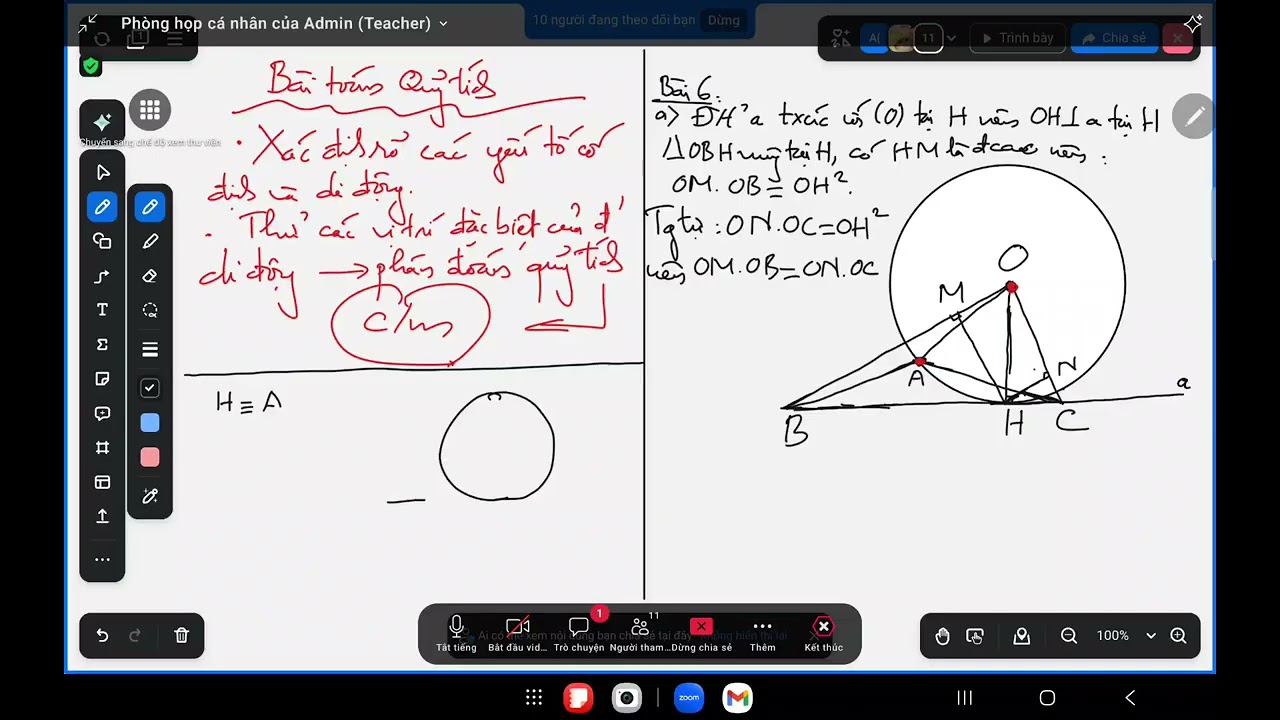 Phòng họp cá nhân của Admin (Teacher)
10 người đang theo dõi bạn
Dừng
A(
11
Trình bày
Chia sẻ
Chuyển sang chế độ xem thư viện
Bài toán Quỹ tích
• Xác định rõ các yếu tố cố
định và di động.
• Thử các vị trí đặc biệt của đ'
di động → phán đoán quỹ tích
C/m
H ≡ A
Bài 6:
a) ĐH' a txúc với (O) tại H nên OH⊥a tại H
△OBH vuông tại H, có HM là đcao nên:
OM.OB=OH²
Tg tự: ON.OC=OH²
nên OM.OB=ON.OC
O
M
A
N
a
B
H
C
T
100%
1
11
Tắt tiếng
Bắt đầu vid...
Trò chuyện
Người tham...
Dừng chia sẻ
Thêm
Kết thúc
Ai có thể xem nội dung bạn chia sẻ tại đây
zoom